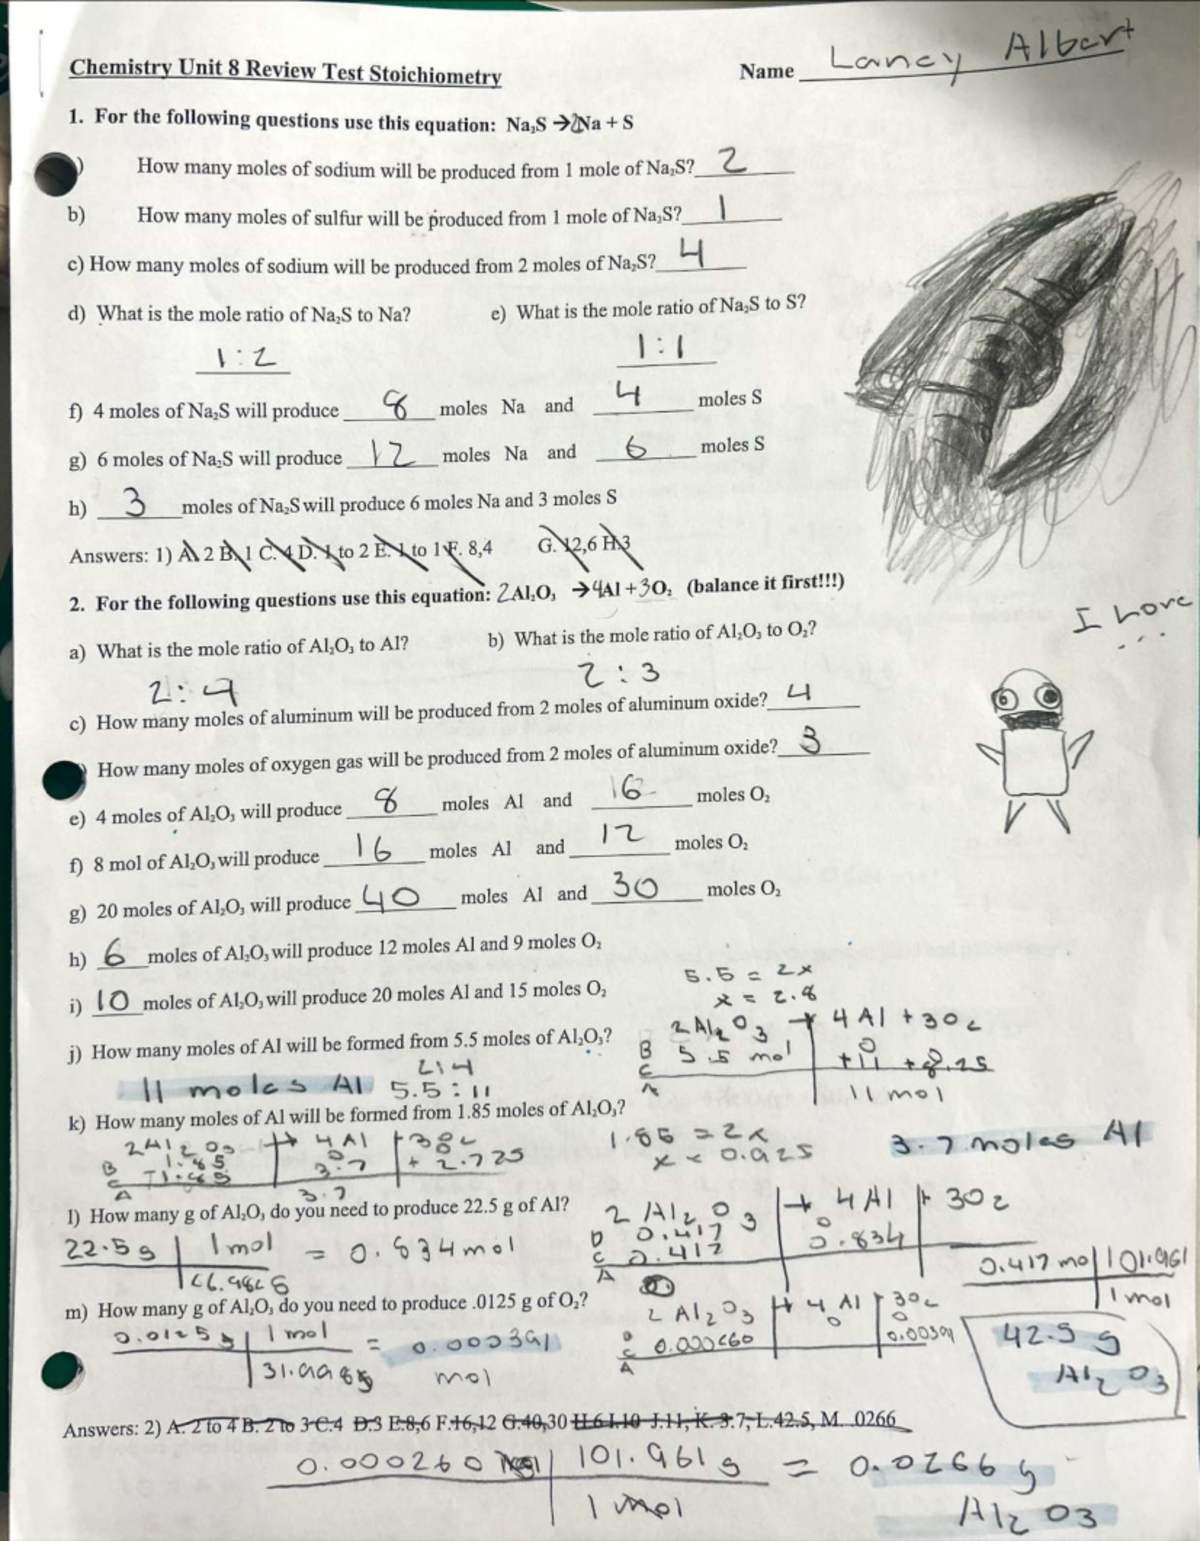 Chemistry Unit 8 Review Test Stoichiometry Name Laney Albert
1. For the following questions use this equation: Na₂S → 2Na + S
) How many moles of sodium will be produced from 1 mole of Na₂S? 2
b) How many moles of sulfur will be produced from 1 mole of Na₂S? 1
c) How many moles of sodium will be produced from 2 moles of Na₂S? 4
d) What is the mole ratio of Na₂S to Na? e) What is the mole ratio of Na₂S to S?
1:2 1:1
f) 4 moles of Na₂S will produce 8 moles Na and 4 moles S
g) 6 moles of Na₂S will produce 12 moles Na and 6 moles S
h) 3 moles of Na₂S will produce 6 moles Na and 3 moles S
Answers: 1) A. 2 B. 1 C. 4 D. 1 to 2 E. 1 to 1 F. 8,4 G. 12,6 H. 3
2. For the following questions use this equation: 2Al₂O₃ → 4Al + 3O₂ (balance it first!!!)
I Love
....
a) What is the mole ratio of Al₂O₃ to Al? b) What is the mole ratio of Al₂O₃ to O₂?
2:4 2:3
c) How many moles of aluminum will be produced from 2 moles of aluminum oxide? 4
How many moles of oxygen gas will be produced from 2 moles of aluminum oxide? 3
e) 4 moles of Al₂O₃ will produce 8 moles Al and 16 moles O₂
f) 8 mol of Al₂O₃ will produce 16 moles Al and 12 moles O₂
g) 20 moles of Al₂O₃ will produce 40 moles Al and 30 moles O₂
h) 6 moles of Al₂O₃ will produce 12 moles Al and 9 moles O₂
i) 10 moles of Al₂O₃ will produce 20 moles Al and 15 moles O₂
5.5 = 2x
x = 2.8
j) How many moles of Al will be formed from 5.5 moles of Al₂O₃?
2Al₂O₃ → 4Al + 3O₂
B 5.5 mol 0
C +11 +8.25
A 11 mol
2:4
11 moles Al 5.5:11
k) How many moles of Al will be formed from 1.85 moles of Al₂O₃?
2Al₂O₃ → 4Al + 3O₂
B 1.85 0 0
C -1.85 3.7 + 2.725
A 3.7
1.85 = 2x
x = 0.925
3.7 moles Al
l) How many g of Al₂O₃ do you need to produce 22.5 g of Al?
22.5 g 1 mol = 0.834 mol
2Al₂O₃ → 4Al + 3O₂
0.417 0
C 0.417 0.834
A
0.417 mol 101.961
1 mol
42.5 g
Al₂O₃
m) How many g of Al₂O₃ do you need to produce .0125 g of O₂?
0.0125 g 1 mol = 0.000391
31.998 g mol
2Al₂O₃ → 4Al + 3O₂
0 0
C
A
Answers: 2) A. 2 to 4 B. 2 to 3 C.4 D.3 E.8,6 F.16,12 G.40,30 H.6 I.10 J.11, K. 3.7, L.42.5, M. .0266
0.000260 mol 101.961 g = 0.0266 g
1 mol Al₂O₃